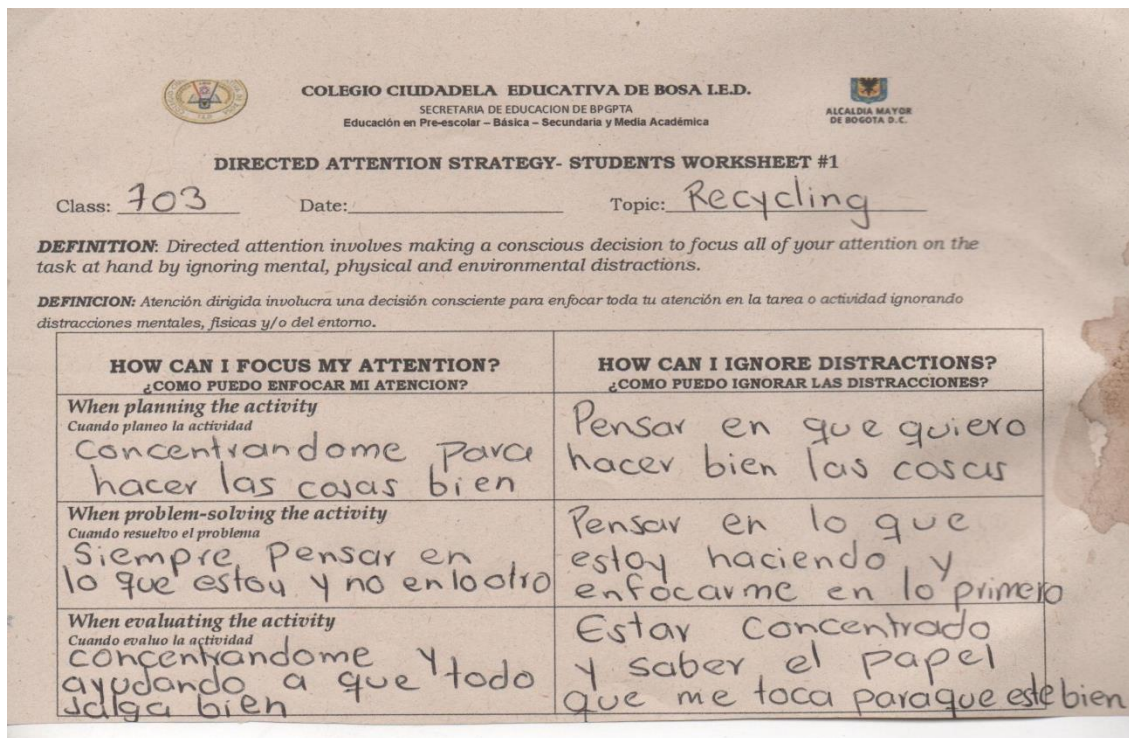 COLEGIO CIUDADELA EDUCATIVA DE BOSA I.E.D.
SECRETARIA DE EDUCACION DE BPGPTA
Educación en Pre-escolar – Básica – Secundaria y Media Académica
ALCALDIA MAYOR
DE BOGOTA D.C.
DIRECTED ATTENTION STRATEGY- STUDENTS WORKSHEET #1
Class: 703 Date: Topic: Recycling
DEFINITION: Directed attention involves making a conscious decision to focus all of your attention on the
task at hand by ignoring mental, physical and environmental distractions.
DEFINICION: Atención dirigida involucra una decisión consciente para enfocar toda tu atención en la tarea o actividad ignorando
distracciones mentales, físicas y/o del entorno.
HOW CAN I FOCUS MY ATTENTION?
¿COMO PUEDO ENFOCAR MI ATENCION?
HOW CAN I IGNORE DISTRACTIONS?
¿COMO PUEDO IGNORAR LAS DISTRACCIONES?
When planning the activity
Cuando planeo la actividad
concentrandome para
hacer las cosas bien
Pensar en que quiero
hacer bien las cosas
When problem-solving the activity
Cuando resuelvo el problema
Siempre Pensar en
lo que estoy y no en lo otro
Pensar en lo que
estoy haciendo y
enfocarme en lo primero
When evaluating the activity
Cuando evaluo la actividad
concentrandome y
ayudando a que todo
salga bien
Estar concentrado
y saber el papel
que me toca para que este bien